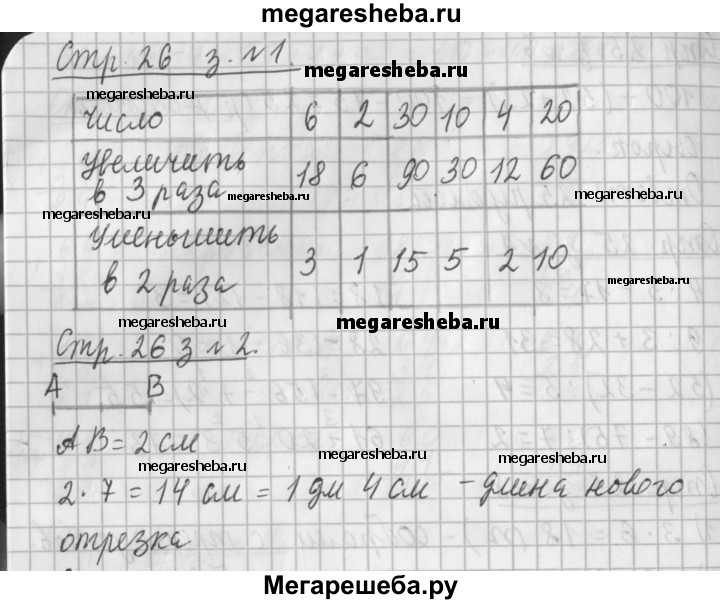 megaresheba.ru
Стр. 26 з. №1.
megaresheba.ru
megaresheba.ru
Число 6 2 30 10 4 20
Увеличить
в 3 раза 18 6 90 30 12 60
megaresheba.ru megaresheba.ru
megaresheba.ru
Уменьшить
в 2 раза 3 1 15 5 2 10
megaresheba.ru
megaresheba.ru megaresheba.ru
Стр. 26 з №2.
A B
AB = 2 см
megaresheba.ru megaresheba.ru
2 · 7 = 14 см = 1 дм 4 см - длина нового
отрезка
megaresheba.ru
Мегарешеба.ру